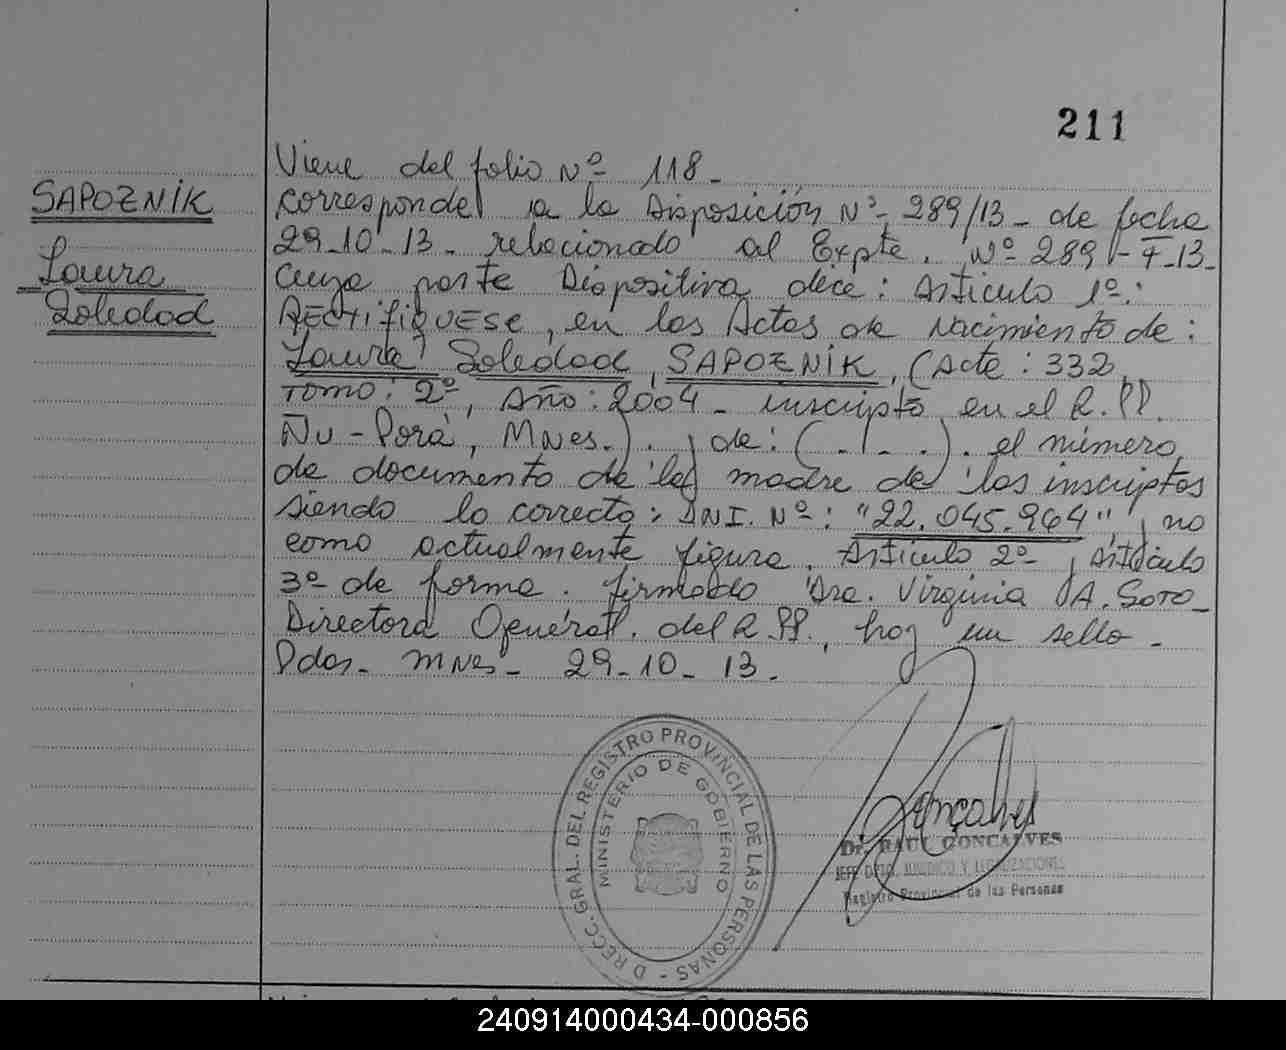 211
SAPOZNIK
Laura
Soledad
Viene del folio Nº 118-
Corresponde a la Disposición Nº 289/13- de fecha
29-10-13- relacionado al Expte. Nº 289 - F-13-
cuya parte Dispositiva dice: Artículo 1º:
RECTIFIQUESE, en las Actas de Nacimiento de:
Laura Soledad SAPOZNIK, (Acta: 332,
Tomo: 2º, Año: 2004- inscripta en el R.PP.
Ñu-Porá, Mnes.). y de: (-.-.-). el número
de documento de la madre de los inscriptos
siendo lo correcto: DNI. Nº: "22.045.964" y no
como actualmente figura. Artículo 2º y Artículo
3º de forma. firmado Dra. Virginia A. Soto-
Directora General. del R.PP., hay un sello-
Pdas- Mnes- 29-10-13.
DIRECC. GRAL. DEL REGISTRO PROVINCIAL DE LAS PERSONAS -
MINISTERIO DE GOBIERNO
Gonçalves
Dr. RAUL GONCALVES
JEFE DPTO. JURIDICO Y LEGALIZACIONES
Registro Provincial de las Personas
240914000434-000856